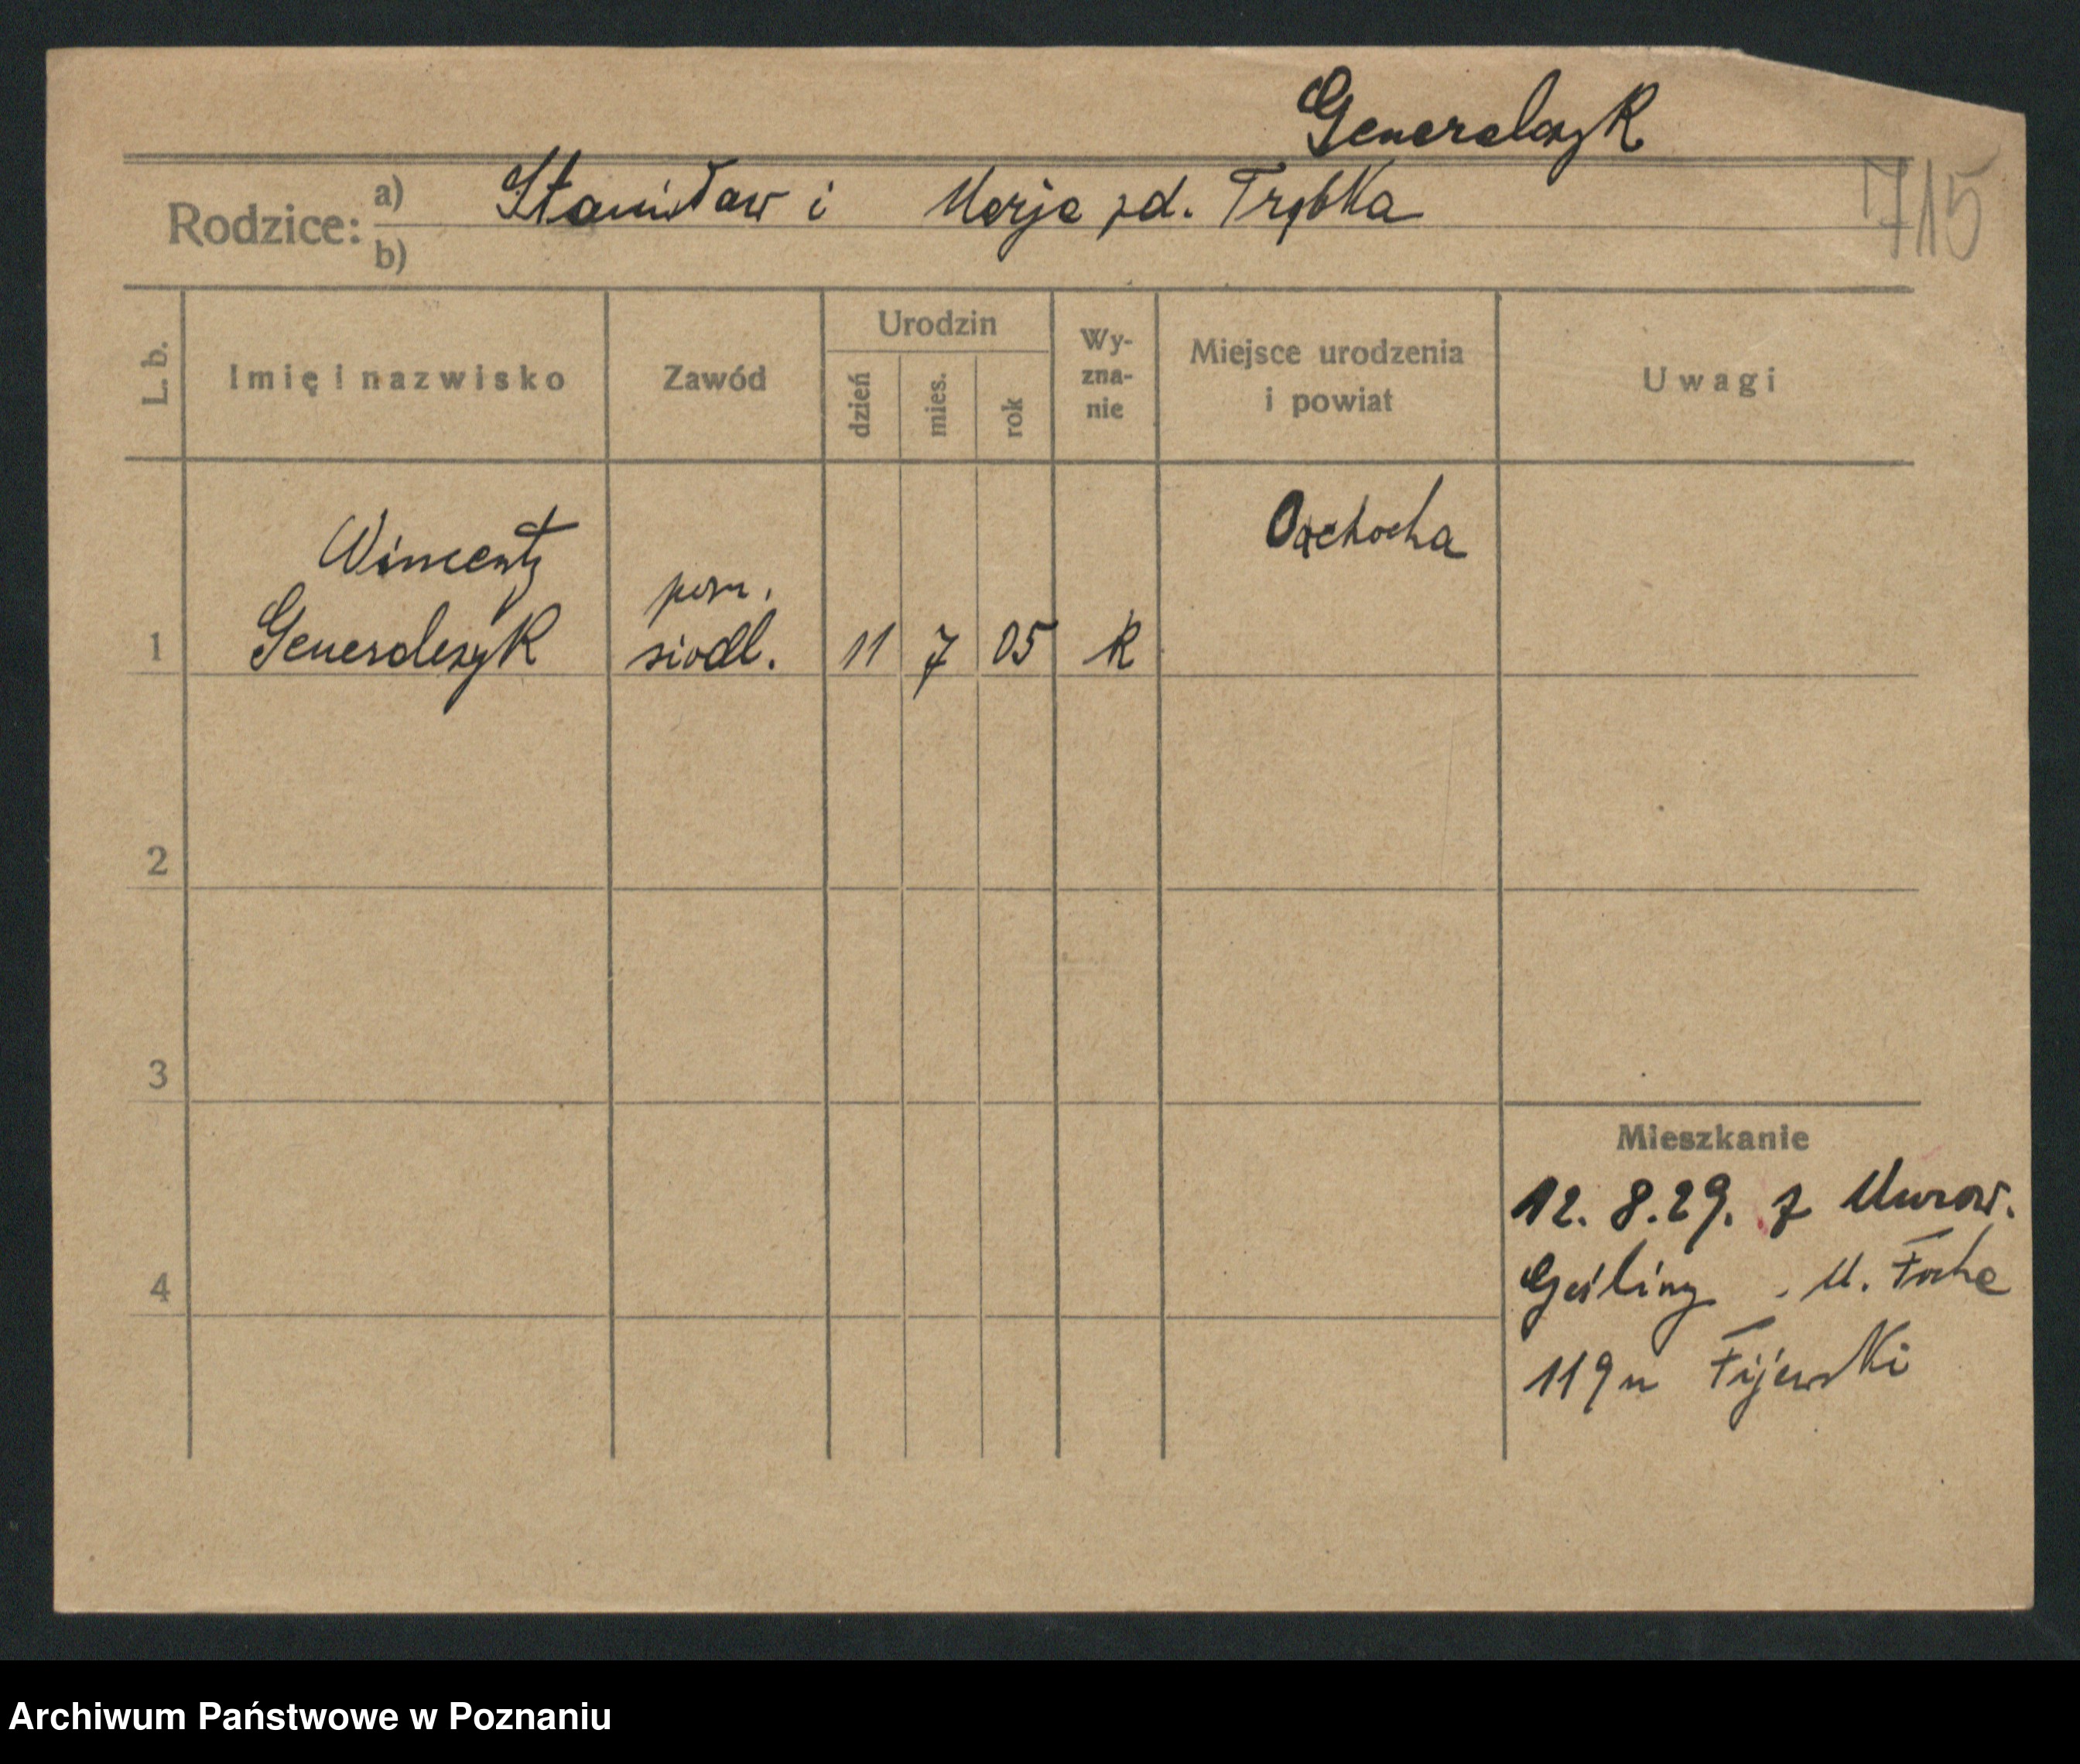 Generalczyk
Rodzice: a) Stanisław i Marja zd. Trąbka
715
b)
L. b.
Imię i nazwisko
Zawód
Urodzin
dzień
mies.
rok
Wy-
zna-
nie
Miejsce urodzenia
i powiat
Uwagi
Wincenty
Generalczyk
pom.
siodl.
1
11
7
05
K
2
3
4
Mieszkanie
12. 8.29. z Murow.
Gośliny . M. Focha
119 u Fijewski
Archiwum Państwowe w Poznaniu